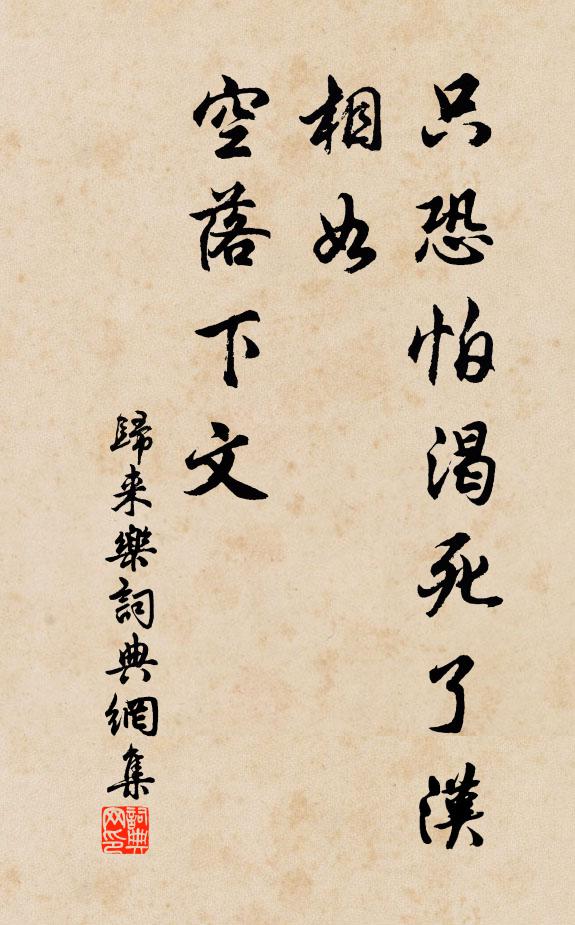 只恐怕渴死了漢
相如
空落下文
歸来樂詞典網集
詞典
网印